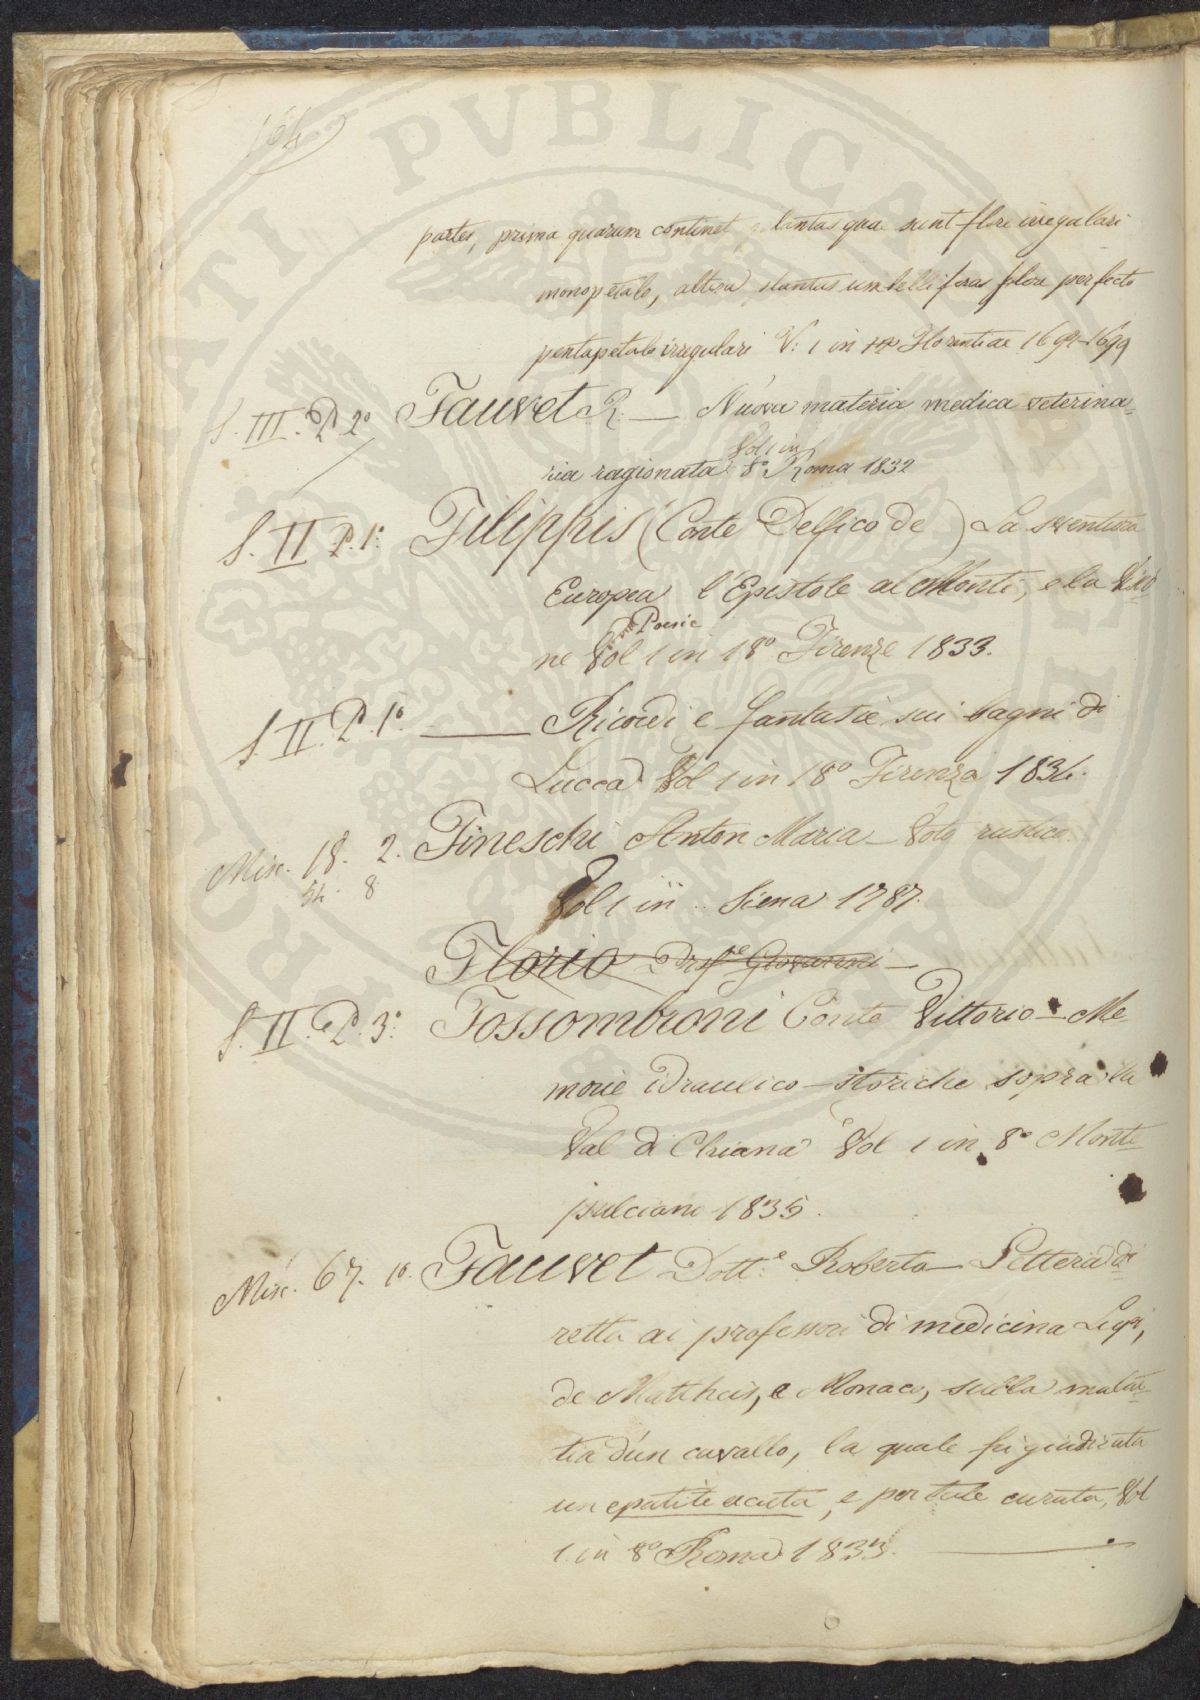 164
partes, prima quarum continet plantas quae sunt flore irregulari
monopetalo, altera plantas umbelliferas flore perfecto
pentapetalo irregulari V: 1 in Florentiae 1699
S. III. P. 2° Fauvet R. — Nuova materia medica veterina-
ria ragionata Vol 1 in 8° Roma 1832
S. II P. 1° Filippis (Conte Delfico de) La sventura
Europea l'Epistole al Monti, e la Visio
ne Poesie Vol 1 in 18° Firenze 1833.
S. II. P. 1° —— Ricordi e fantasie sui bagni di
Lucca Vol 1 in 18° Firenze 1834.
Misc. 18. 2. Fineschi Anton Maria — Voto rustico
54. 8
Vol 1 in .. Siena 1787.
Florio Prof.e Giovanni —
S. II. P. 3° Fossombroni Conte Vittorio — Me
morie idraulico-storiche sopra la
Val di Chiana Vol 1 in 8° Monte
pulciano 1835.
Misc. 67. 10. Fauvet Dott.e Roberto — Lettera di
retta ai professori di medicina
de Mattheis, e Monaco, sulla malat-
tia d'un cavallo, la quale fu giudicata
un epatite acuta, e per tale curata, Vol
1 in 8° Roma 1833. ——
6
PUBLICA